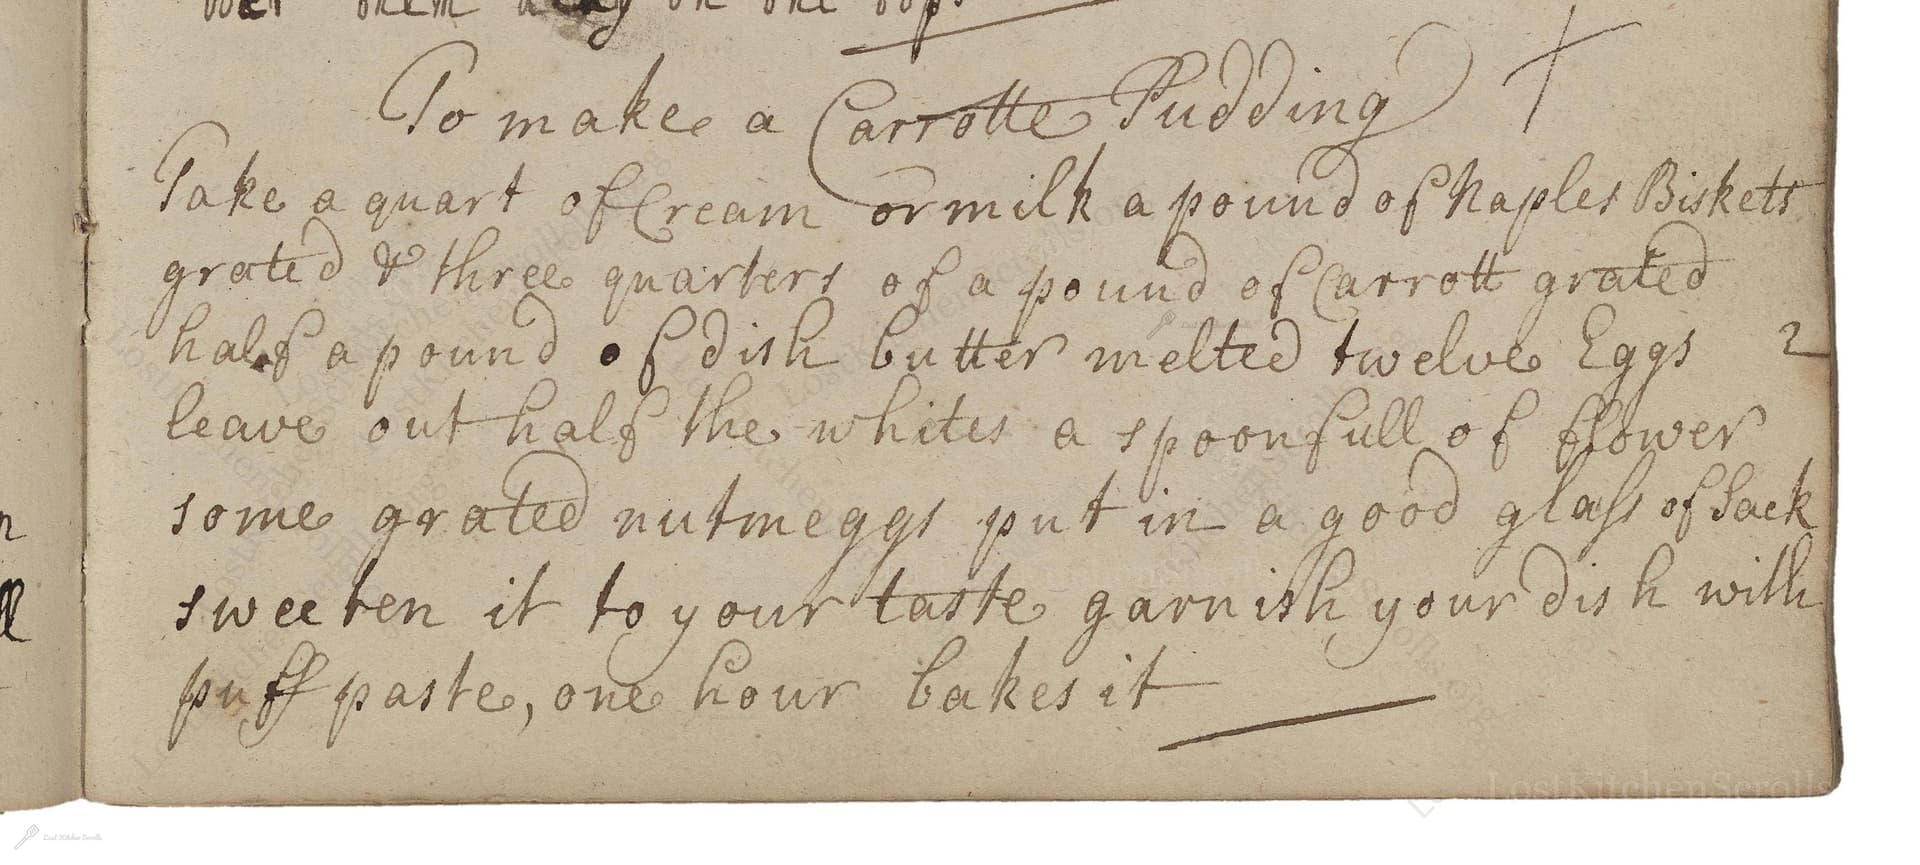 them on the tops
To make a Carrotte Pudding
Take a quart of Cream or milk a pound of Naples Biskets
grated & three quarters of a pound of Carrott grated
half a pound of dish butter melted twelve Eggs 2
leave out half the whites a spoonfull of flower
some grated nutmeggs put in a good glass of Sack
sweeten it to your taste garnish your dish with
puff paste, one hour bakes it
LostKitchenScrolls
Lost Kitchen Scrolls